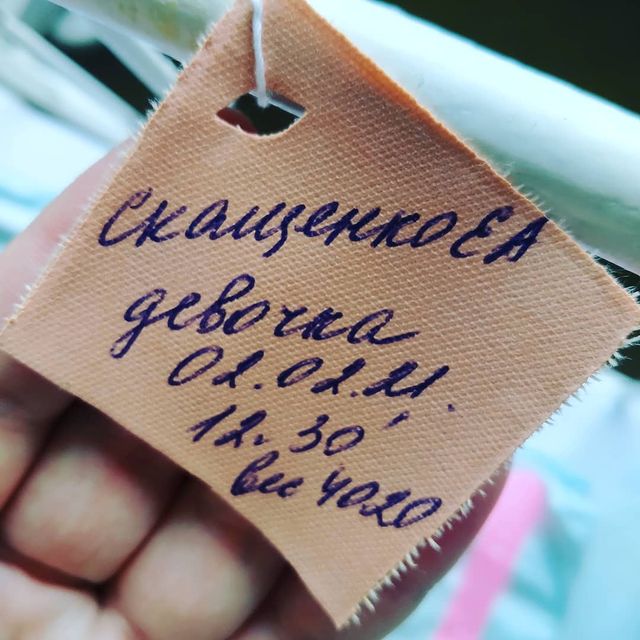 Скащенко ЕА
девочка
02.02.21.
12.30'
вес 4020